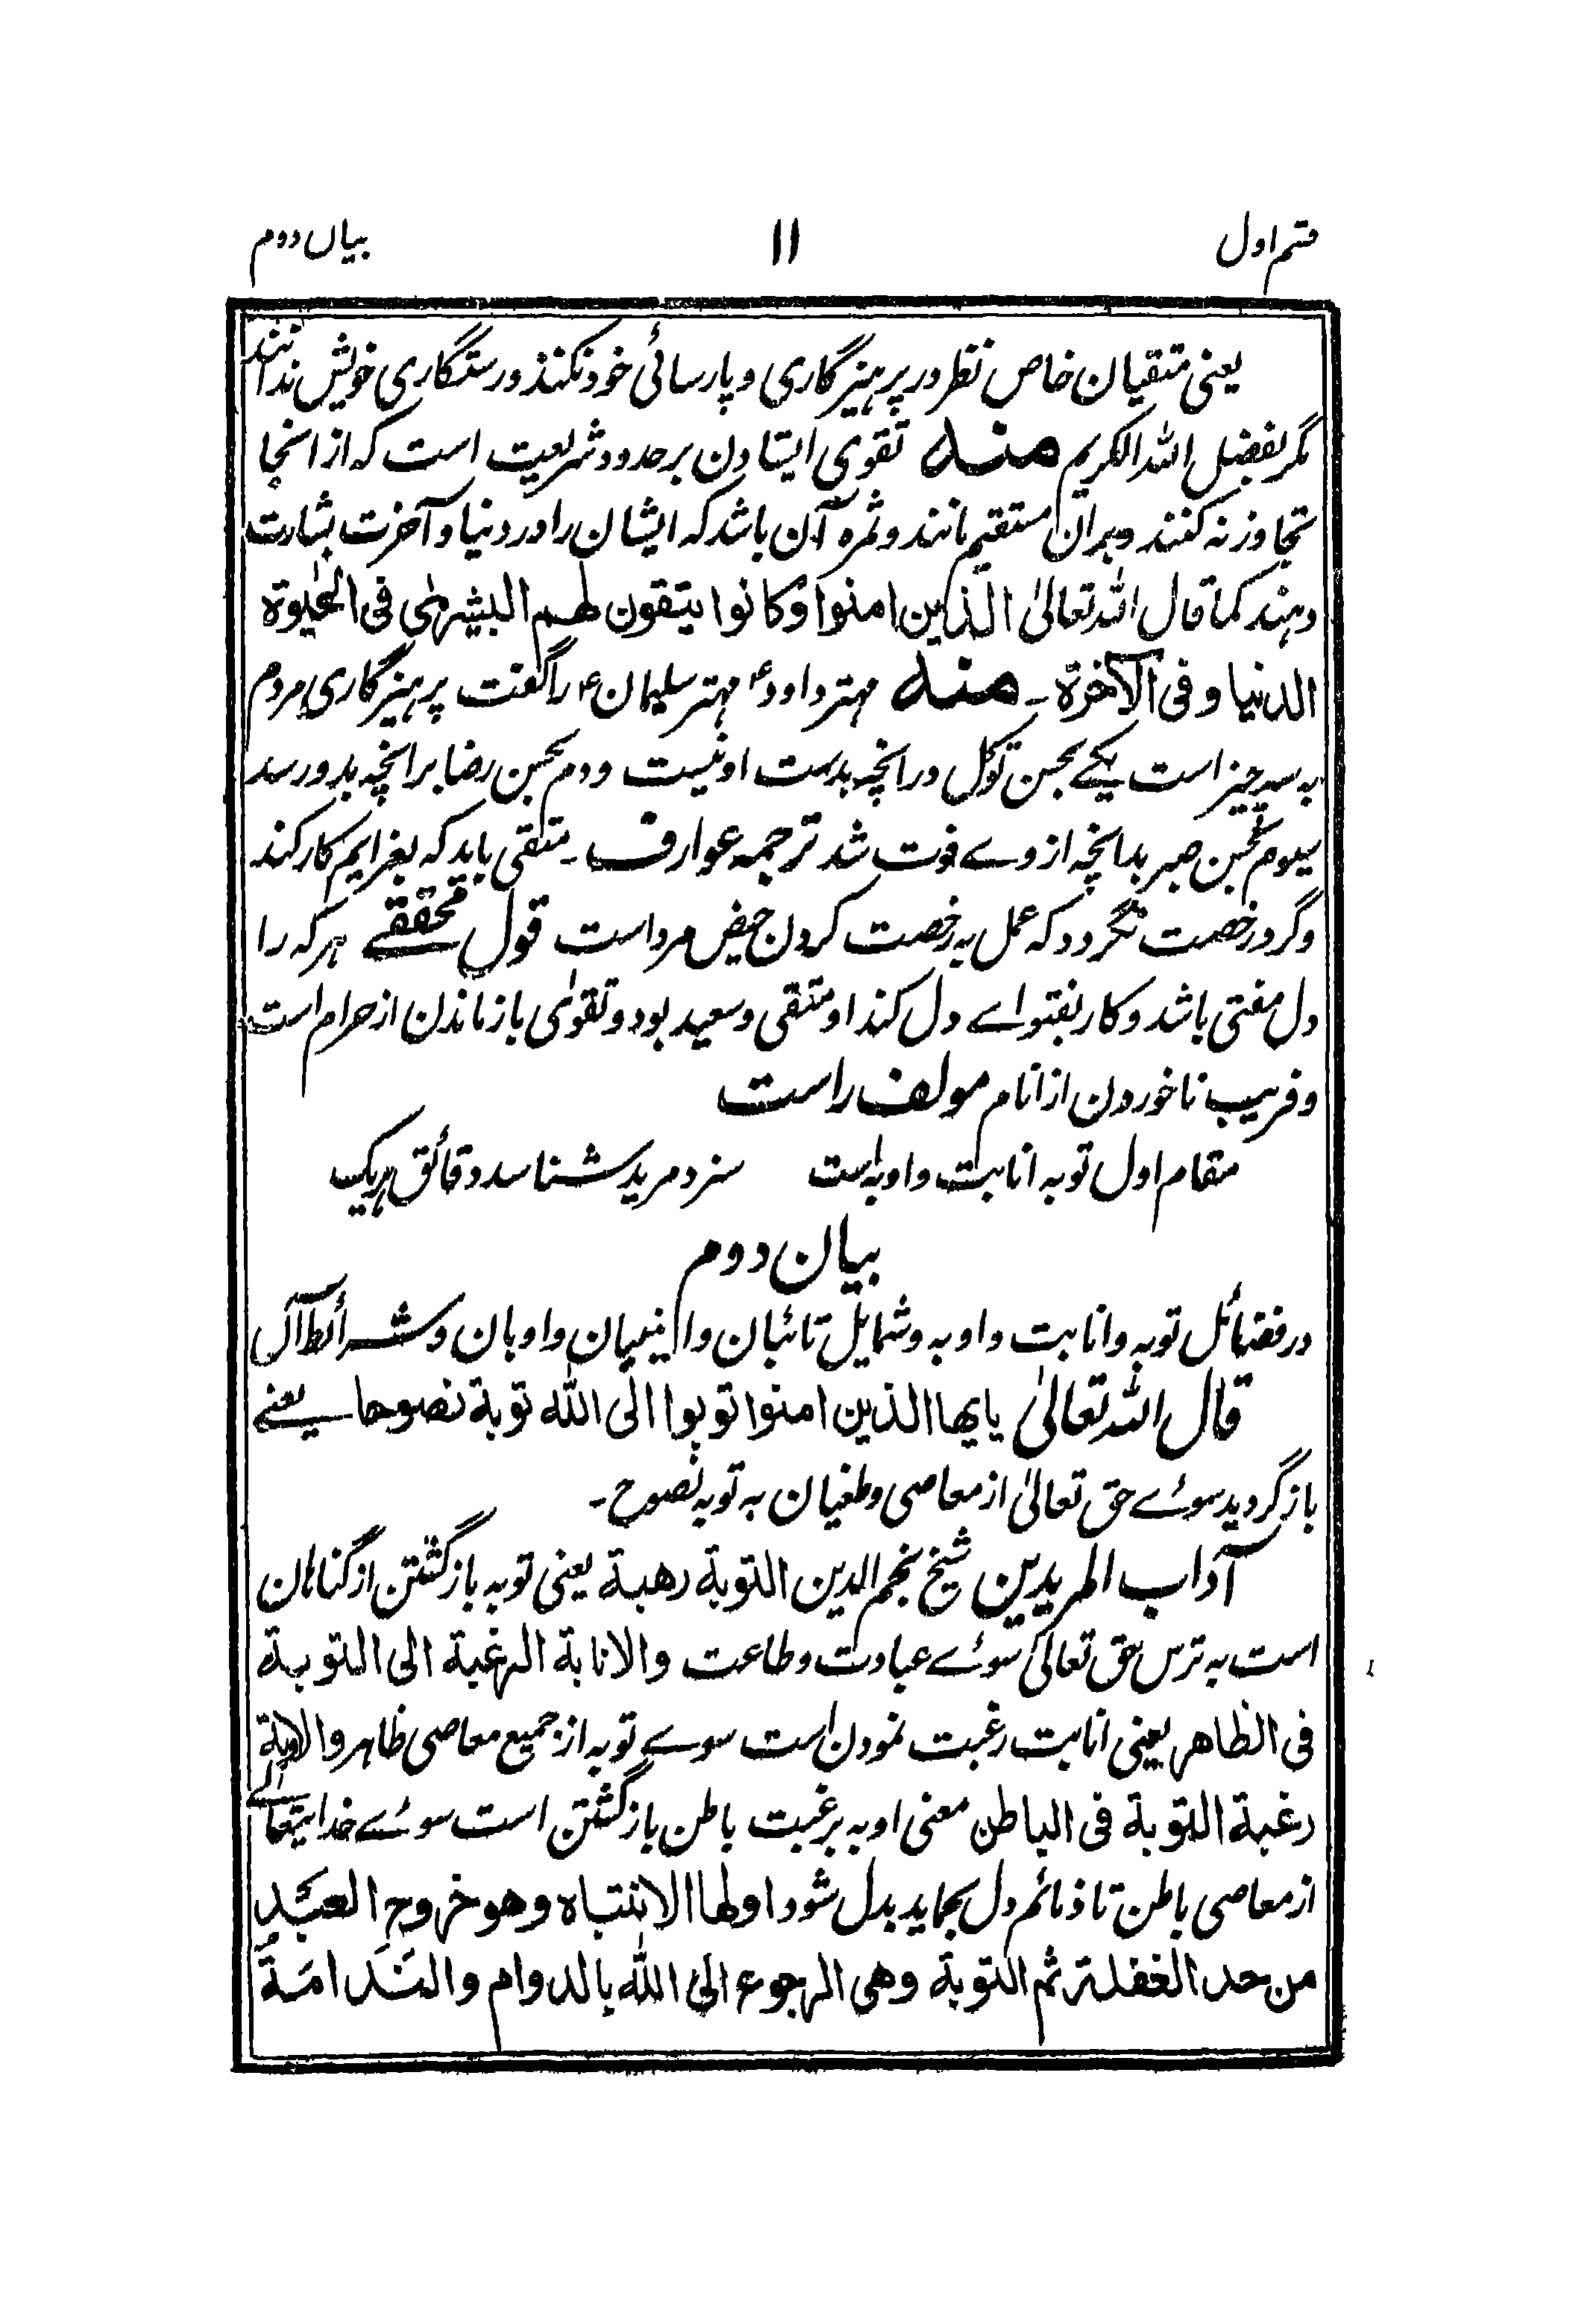 قسم اول
۱۱
بیاں دوم
یعنی متقیان خاص نظر در پرہیزگاری و پارسائی خود نکنند و رستگاری خویش ندانند
مگر بفضل اللہ الکریم منہ تقوی ایستادن بر حدود شریعت است کہ از انجا
تجاوز نہ کنند و بران مستقیم مانند و ثمرہ آن باشد کہ ایشان را در دنیا و آخرت بشارت
دہند کما قال اللہ تعالیٰ الذین امنوا و کانوا یتقون لهم البشریٰ فی الحیٰوة
الدنیا و فی الآخرة ۔ منہ مہتر داودؑ مہتر سلیمانؑ را گفت پرہیزگاری مردم
بہ سہ چیز است یکے بحسن توکل در انچہ بدست او نیست دوم بحسن رضا بر انچہ بدو رسد
سیوم بحسن صبر بدانچہ از وے فوت شد ترجمہ عوارف ۔ متقی باید کہ بعزایم کار کند
و گرد رخصت نگردد کہ عمل بہ رخصت کردن حیض مرد است قول محققے ہر کہ را
دل مفتی باشد و کار بفتواے دل کند او متقی و سعید بود و تقوٰی باز ماندن از حرام است
و فریب نا خوردن از انام مولف راست
مقام اول توبہ انابت و اوبہ است سزد مرید شناسد دقائق ہریک
بیان دوم
در فضائل توبہ و انابت و اوبہ و شمایل تائبان و انیبیان و اوبان و شرائط آں
قال اللہ تعالیٰ یایها الذین امنوا توبوا الی اللہ توبة نصوحا یعنے
باز گردید سوئے حق تعالیٰ از معاصی و طغیان بہ توبہ نصوح ۔
آداب المریدین شیخ نجم الدین التوبة رهبة یعنی توبہ باز گشتن از گناہان
است بہ ترس حق تعالیٰ سوئے عبادت و طاعت والانابة الرغبة الی التوبة
فی الظاهر یعنی انابت رغبت نمودن است سوے توبہ از جمیع معاصی ظاہر و الاوبة
رغبة التوبة فی الباطن معنی اوبہ برغبت باطن باز گشتن است سوئے خدایتعالےٰ
از معاصی باطن تا ذمائم دل بحماید بدل شود اولها الانتباه وهو خروج العبد
من حد الغفلة ثم التوبة وهی الرجوع الی اللہ بالدوام والندامة